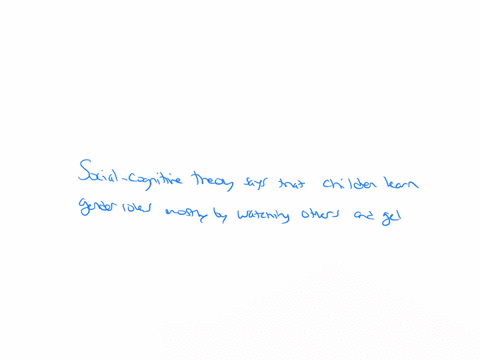 Social-cognitive theory says that children learn
gender roles mostly by watching others and gel